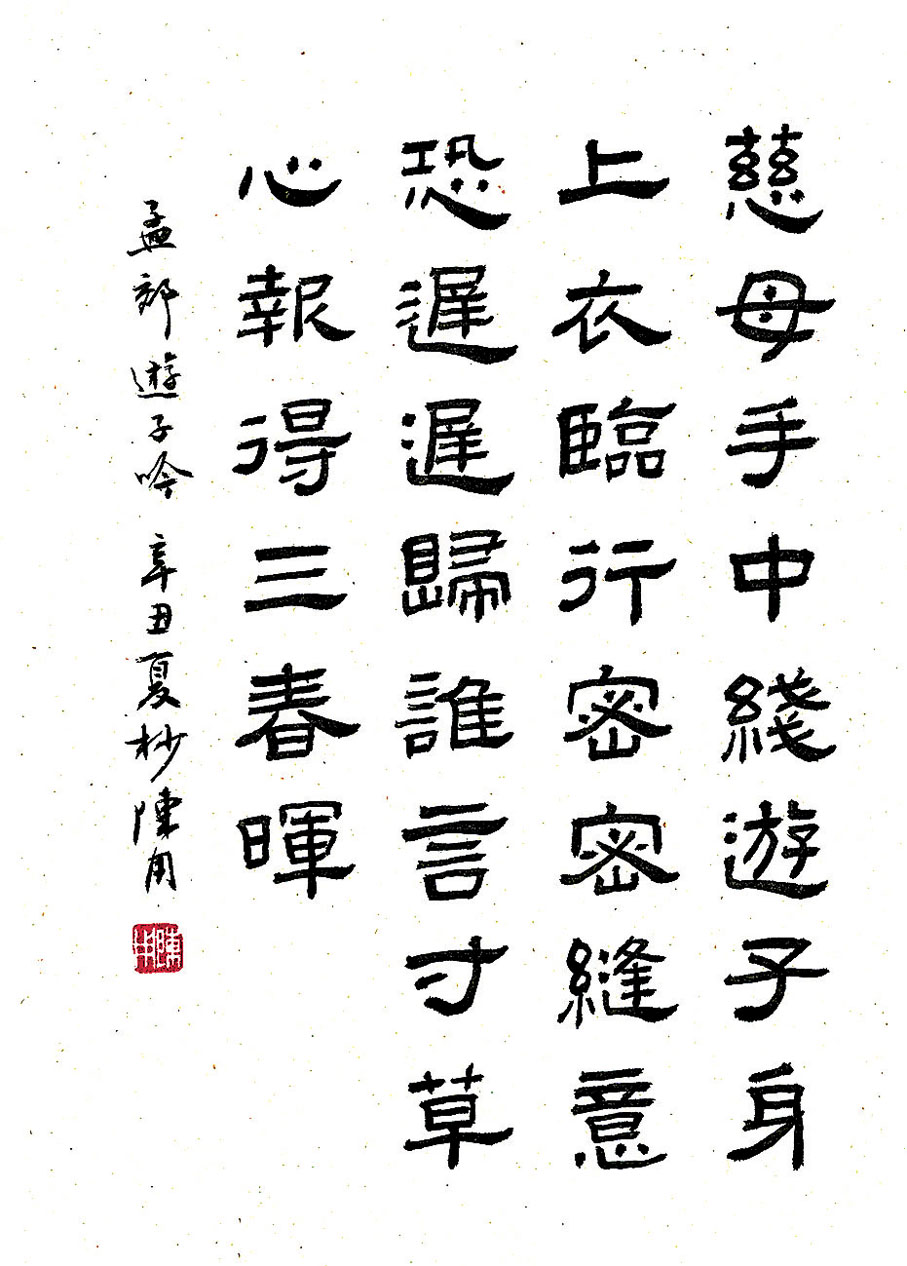 慈母手中綫遊子身
上衣臨行密密縫意
恐遲遲歸誰言寸草
心報得三春暉
孟郊遊子吟 辛丑夏杪陳用
陳用